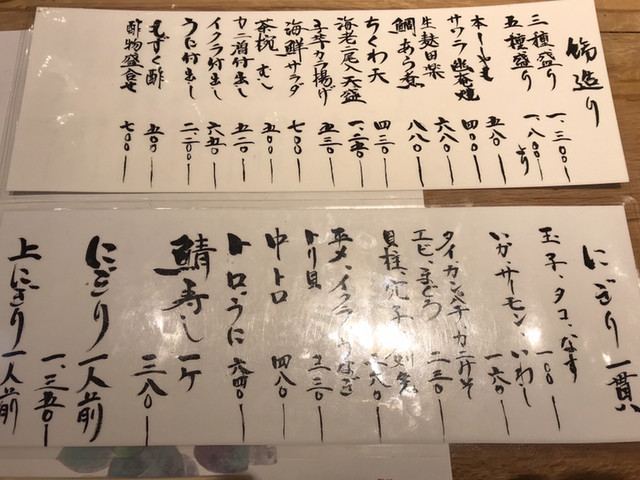 御造り
三種盛り 一、三〇〇
五種盛り 一、八〇〇より
本ししゃも 五八〇
サワラ幽庵焼 四〇〇
生麸田楽 六八〇
鯛あら煮 八八〇
ちくわ天 四三〇
海老二尾入天盛 一、二五〇
手羽カラ揚げ 五三〇
海鮮サラダ 七〇〇
茶椀むし 五〇〇
カニ酒付出し 五二〇
イクラ付出し 六五〇
うに付出し 二、一〇〇
もずく酢 五〇〇
酢物盛合せ 七〇〇
にぎり一貫
玉子、タコ、なす 一〇〇
いか、サーモン、いわし 一六〇
タイ、カンパチ、カニみそ
エビ、まぐろ 二三〇
貝柱、穴子
平メ、イクラ、うなぎ
トリ貝 三三〇
中トロ 四八〇
トロ、うに 六四〇
鯖寿し 一ケ 三八〇
にぎり 一人前 一、三五〇
上にぎり 一人前